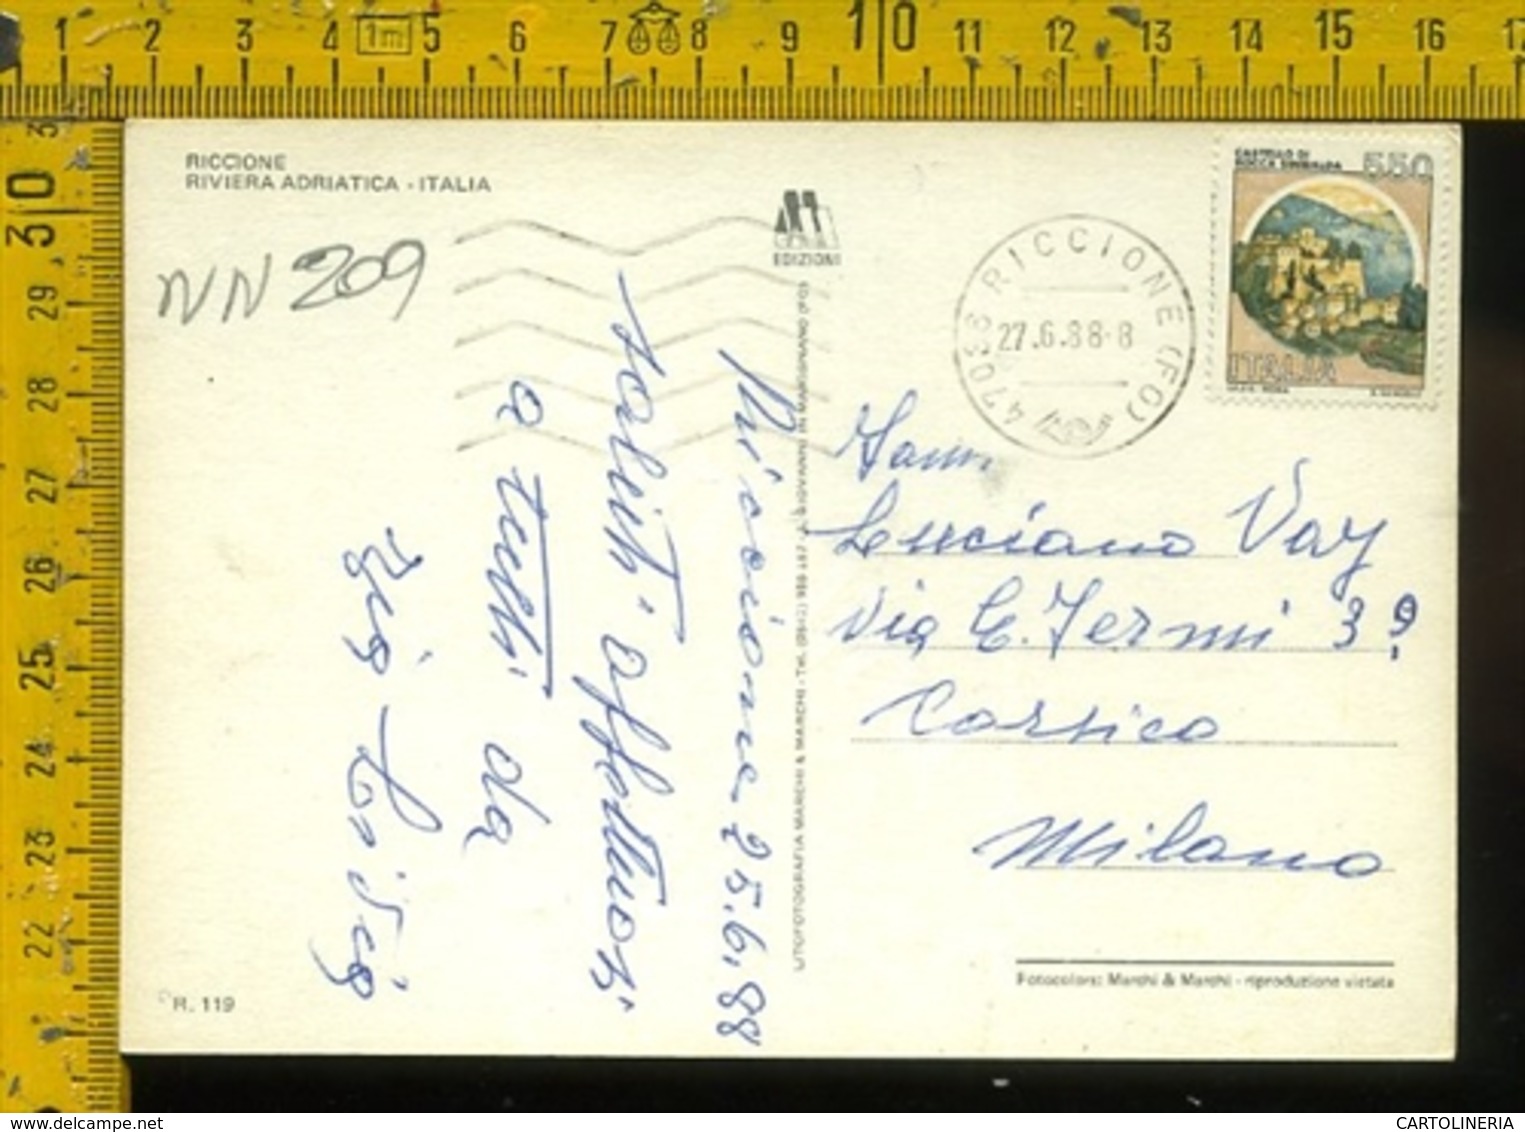 1 2 3 4 1m 5 6 7 8 9 10 11 12 13 14 15 16 17
3
30
29
28
27
26
25
24
23
22
RICCIONE
RIVIERA ADRIATICA - ITALIA
NN 209
EDIZIONI
47036 RICCIONE (FO)
27.6.88-8
CASTELLO DI
ROCCA SINIBALDA
550
ITALIA
Riccione 25.6.88
saluti affettuosi
a tutti da
Zia
LITOFOTOGRAFIA MARCHI & MARCHI - Tel. S. GIOVANNI IN MARIGNANO (FO)
Fam.
Luciano Vay
Via E. Fermi 39
Corsico
Milano
Fotocolors: Marchi & Marchi - riproduzione vietata
R. 119
www.delcampe.net
CARTOLINERIA